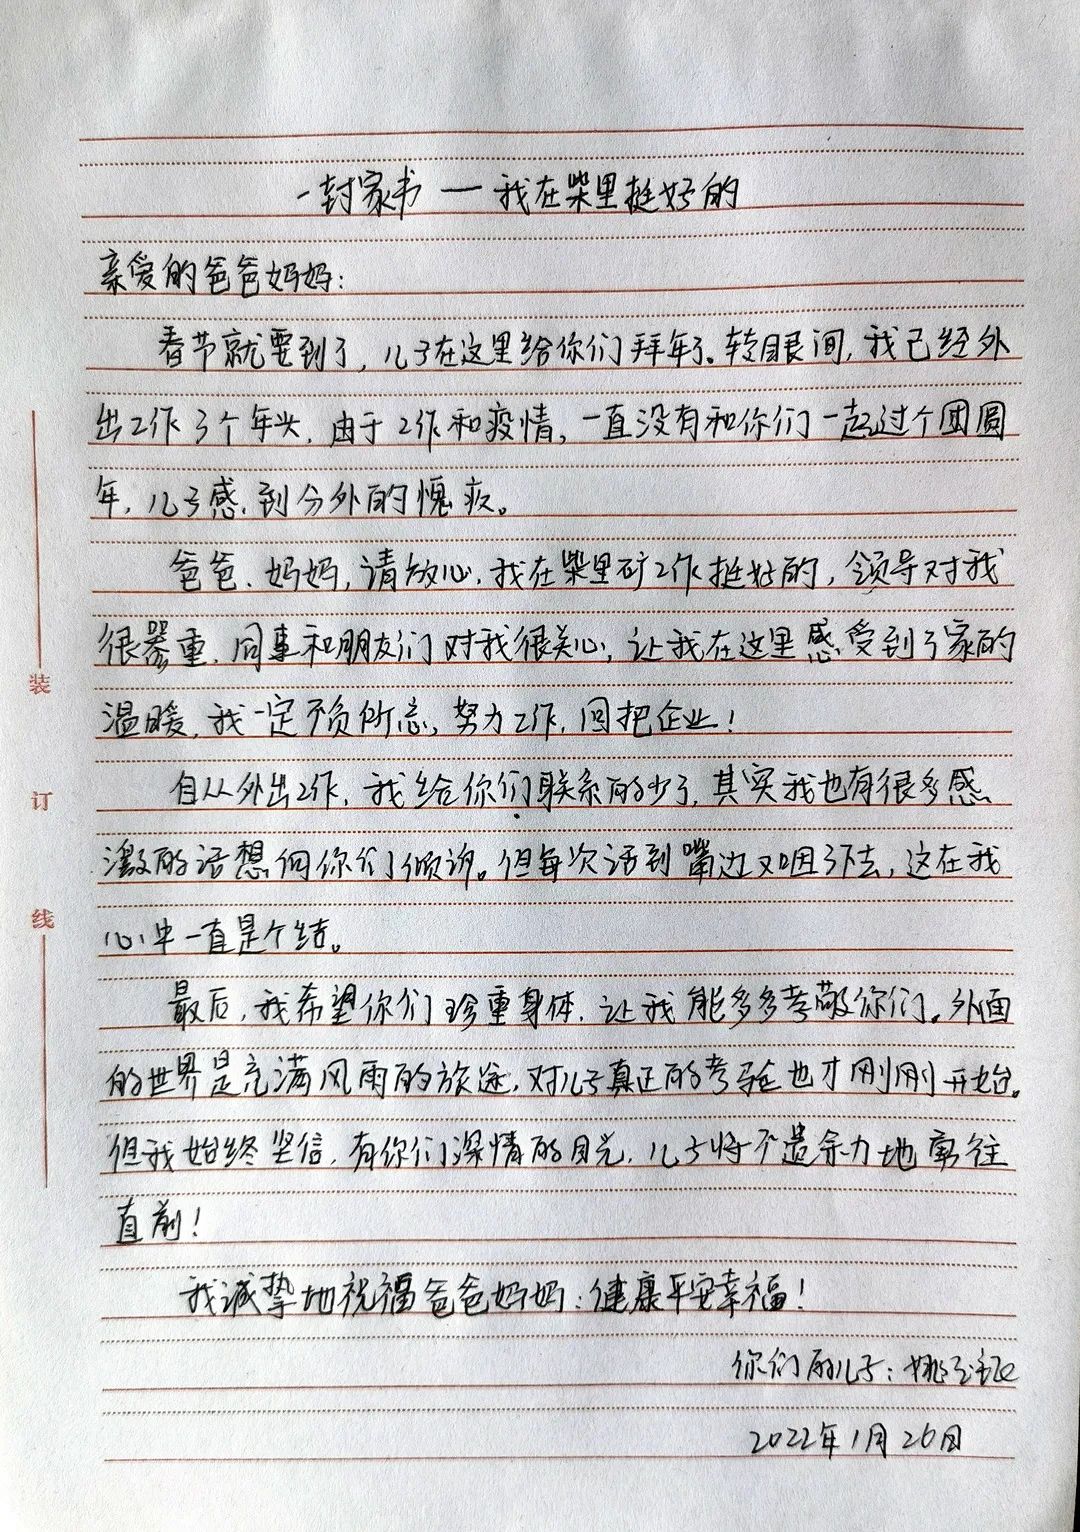 一封家书 — 我在柴里挺好的
亲爱的爸爸妈妈：
春节就要到了，儿子在这里给你们拜年了。转眼间，我已经外
出工作3个年头，由于工作和疫情，一直没有和你们一起过个团圆
年，儿子感到分外的愧疚。
爸爸、妈妈，请放心，我在柴里矿工作挺好的，领导对我
很器重，同事和朋友们对我很关心，让我在这里感受到了家的
温暖，我一定不负所忘，努力工作，回把企业！
自从外出工作，我给你们联系的少了，其实我也有很多感
激的话想向你们倾诉。但每次话到嘴边又咽了下去，这在我
心中一直是个结。
最后，我希望你们珍重身体，让我能多多孝敬你们。外面
的世界是充满风雨的旅途，对儿子真正的考验也才刚刚开始。
但我始终坚信，有你们深情的目光，儿子将不遗余力地勇往
直前！
我诚挚地祝福爸爸妈妈：健康平安幸福！
你们的儿子：姚
2022年1月26日
装
订
线